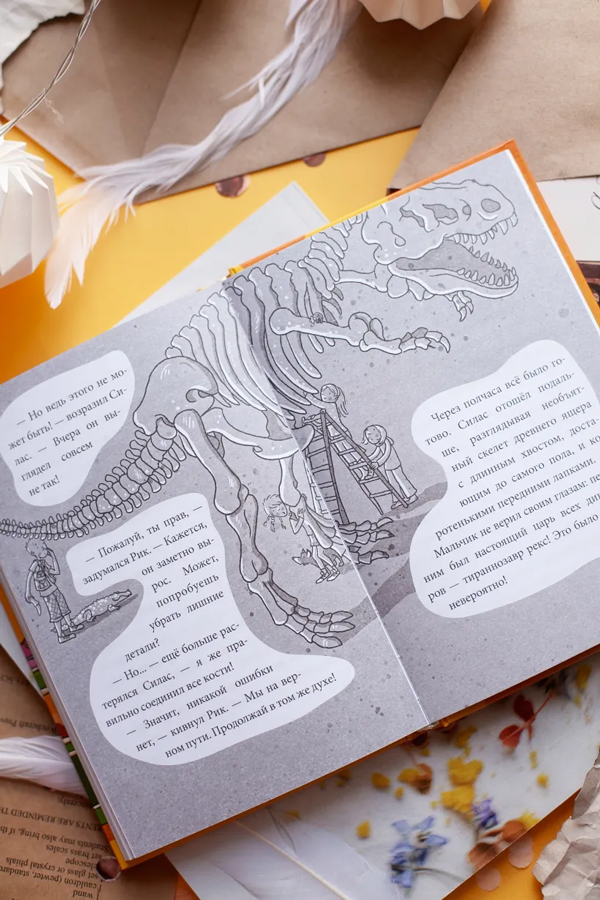 — Но ведь этого не мо-
жет быть! — возразил Си-
лас. — Вчера он вы-
глядел совсем
не так!
— Пожалуй, ты прав, —
задумался Рик. — Кажется,
он заметно вы-
рос. Может,
попробуешь
убрать лишние
детали?
— Но... — ещё больше рас-
терялся Силас, — я же пра-
вильно соединил все кости!
— Значит, никакой ошибки
нет, — кивнул Рик. — Мы на вер-
ном пути. Продолжай в том же духе!
Через полчаса всё было го-
тово. Силас отошёл подаль-
ше, разглядывая необъят-
ный скелет древнего ящера
с длинным хвостом, доста-
ющим до самого пола, и ко
ротенькими передними лапками.
Мальчик не верил своим глазам: пе
ним был настоящий царь всех дин
ров — тираннозавр рекс! Это было
невероятно!
ENTS ARE REMINDED
students may also bring, if th
set brass scales
set glass or crystal phials
cauldron (pewter, standard
wand